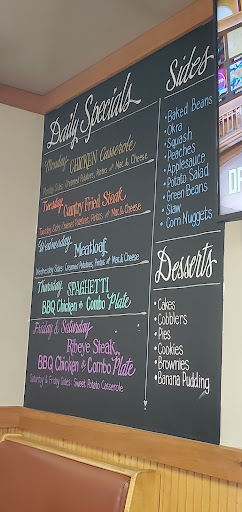 Daily Specials
Monday: CHICKEN Casserole
Monday Sides: Creamed Potatoes, Pintos or Mac & Cheese
Tuesday: Country Fried Steak
Tuesday Sides: Creamed Potatoes, Pintos or Mac & Cheese
Wednesday: Meatloaf
Wednesday Sides: Creamed Potatoes, Pintos or Mac & Cheese
Thursday: SPAGHETTI
BBQ Chicken & Combo Plate
Friday & Saturday
Ribeye Steak
BBQ Chicken & Combo Plate
Saturday & Friday Sides: Sweet Potato Casserole
Sides
•Baked Beans
•Okra
•Squash
•Peaches
•Applesauce
•Potato Salad
•Green Beans
•Slaw
•Corn Nuggets
Desserts
•Cakes
•Cobblers
•Pies
•Cookies
•Brownies
•Banana Pudding